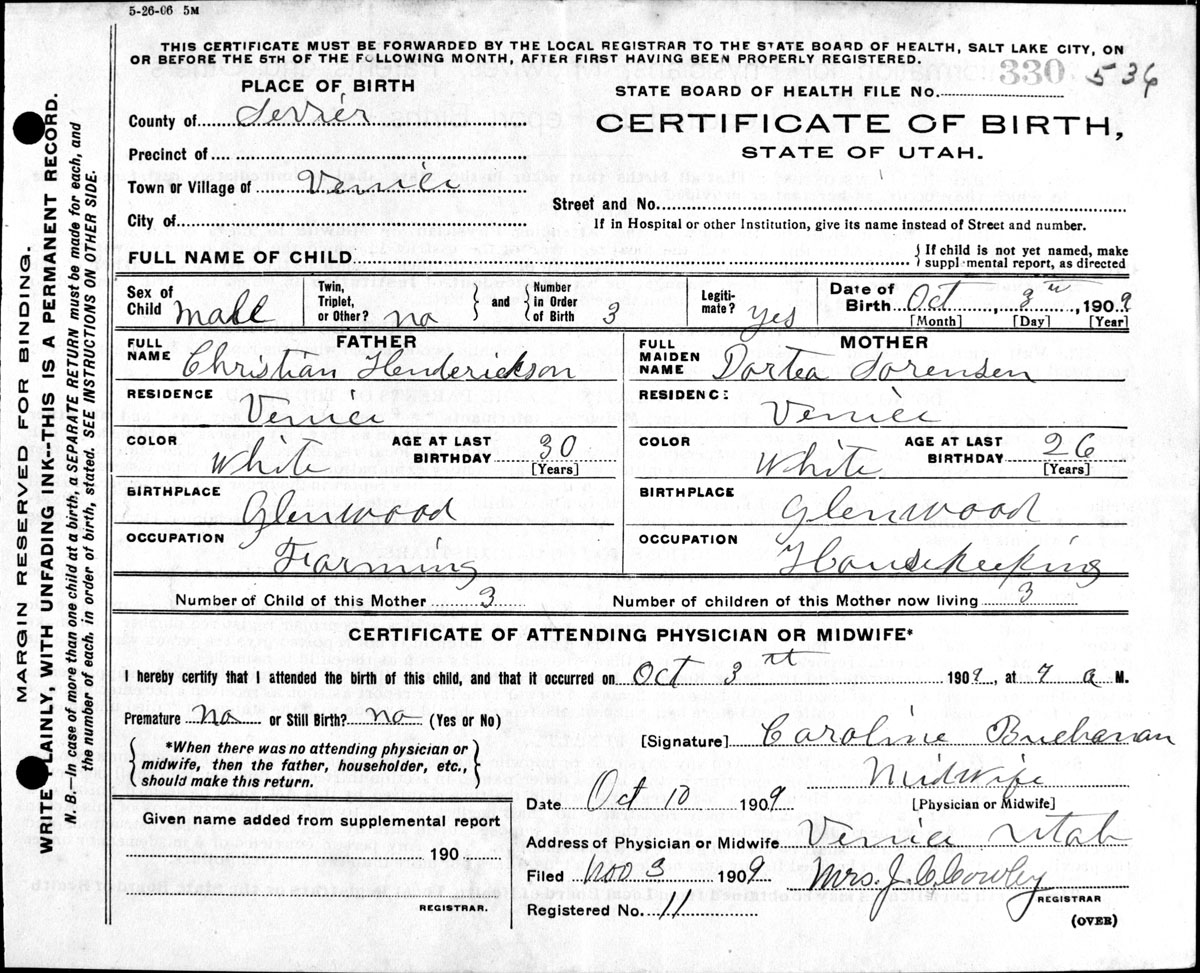 5-26-06 5M
THIS CERTIFICATE MUST BE FORWARDED BY THE LOCAL REGISTRAR TO THE STATE BOARD OF HEALTH, SALT LAKE CITY, ON
OR BEFORE THE 5TH OF THE FOLLOWING MONTH, AFTER FIRST HAVING BEEN PROPERLY REGISTERED.
PLACE OF BIRTH
STATE BOARD OF HEALTH FILE No. 330 536
County of Sevier
CERTIFICATE OF BIRTH,
STATE OF UTAH.
Precinct of
Town or Village of Venice
Street and No.
City of
If in Hospital or other Institution, give its name instead of Street and number.
FULL NAME OF CHILD { If child is not yet named, make
suppl mental report, as directed
Sex of Child Male Twin, Triplet, or Other? no } and { Number in Order of Birth 3 Legiti-mate? yes Date of Birth Oct, 3rd, 1909
[Month] [Day] [Year]
FATHER MOTHER
FULL NAME Christian Henderickson FULL MAIDEN NAME Dortea Sorensen
RESIDENCE Venice RESIDENCE Venice
COLOR White AGE AT LAST BIRTHDAY 30 COLOR White AGE AT LAST BIRTHDAY 26
[Years] [Years]
BIRTHPLACE Glenwood BIRTHPLACE Glenwood
OCCUPATION Farming OCCUPATION Housekeeping
Number of Child of this Mother 3 Number of children of this Mother now living 3
CERTIFICATE OF ATTENDING PHYSICIAN OR MIDWIFE*
I hereby certify that I attended the birth of this child, and that it occurred on Oct 3 1909, at 7 a M.
Premature No or Still Birth? no (Yes or No)
[Signature] Caroline Buchanan
{ *When there was no attending physician or
midwife, then the father, householder, etc.,
should make this return. }
Midwife
[Physician or Midwife]
Date Oct 10 1909
Given name added from supplemental report
190
REGISTRAR.
Address of Physician or Midwife Venice Utah
Filed Nov 3 1909 Mrs. J. C. Cowley
REGISTRAR
Registered No. 11
(OVER)
MARGIN RESERVED FOR BINDING.
WRITE PLAINLY, WITH UNFADING INK--THIS IS A PERMANENT RECORD.
N. B.—In case of more than one child at a birth, a SEPARATE RETURN must be made for each, and
the number of each. in order of birth, stated. SEE INSTRUCTIONS ON OTHER SIDE.